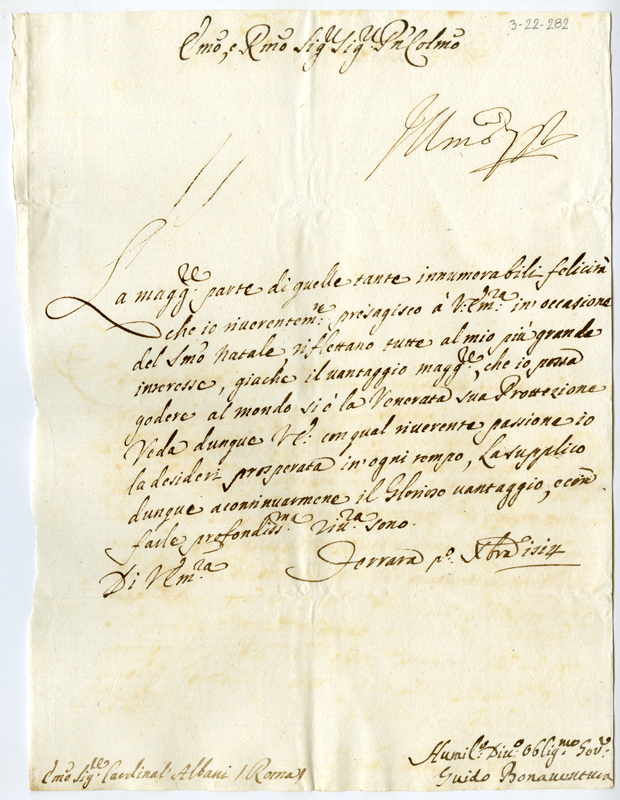 3-22-282
Emo, e Rmo Sigr Sigr Pn Colmo
La maggre parte di quelle tante innumerabili felicità
che io riverentemte presagisco à V. Emza in occasione
del Smo Natale riflettano tutte al mio più grande
interesse, giache il vantaggio maggre, che io possa
godere al mondo si é la Venerata sua Protezzione
Veda dunque V. E. con qual riverente passione io
la desideri prosperata in ogni tempo, La supplico
dunque a continuarmene il Glorioso vantaggio, e con
farle profondissma riva sono.
Di V. Emza
Ferrara po. Xbre
Emo Sigre Cardinal Albani (Roma)
Humilo Divo Obligmo Serv
Guido Bonaventura